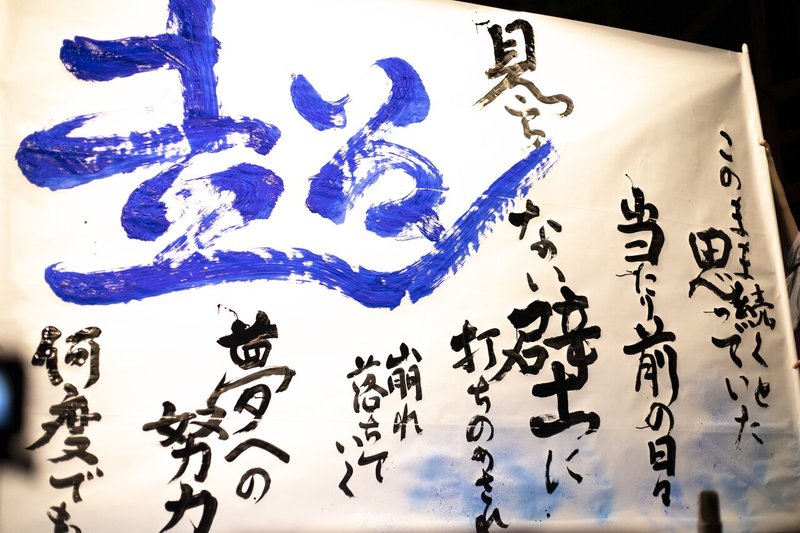 超
このまま続くと
思っていた
当たり前の日々
見えない壁に
打ちのめされ
崩れ
落ちていく
夢への
努力
何度でも